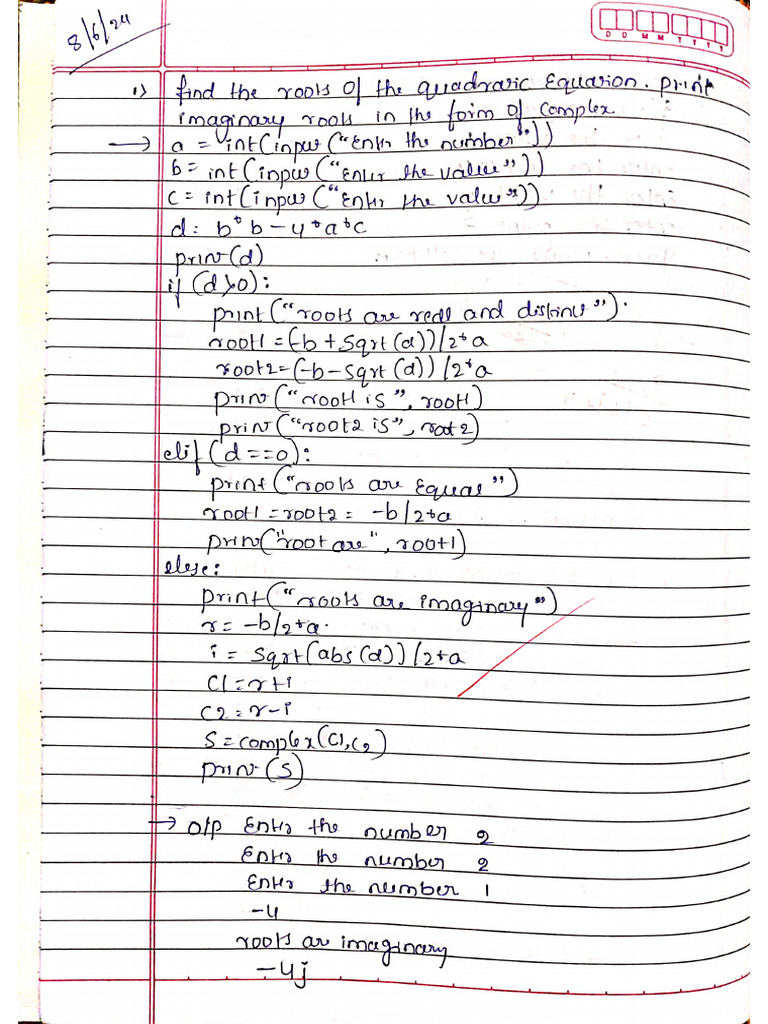 8/6/24
D D M M Y Y Y Y
1) find the roots of the quadratic Equation. print
imaginary roots in the form of complex
→ a = int(input("Enter the number"))
b = int(input("Enter the value"))
c = int(input("Enter the value"))
d = b*b-4*a*c
print(d)
if (d>0):
print("roots are real and distinct").
root1 = (-b + sqrt(d))/2*a
root2 = (-b - sqrt(d))/2*a
print("root1 is", root1)
print("root2 is", root2)
elif (d==0):
print("roots are Equal")
root1 = root2 = -b/2*a
print("root are", root1)
else:
print("roots are imaginary")
r = -b/2*a.
i = sqrt(abs(d))/2*a
C1 = r+i
C2 = r-i
S = complex(C1,C2)
print(S)
→ O/P Enter the number 2
Enter the number 2
Enter the number 1
-4
roots are imaginary
-4j